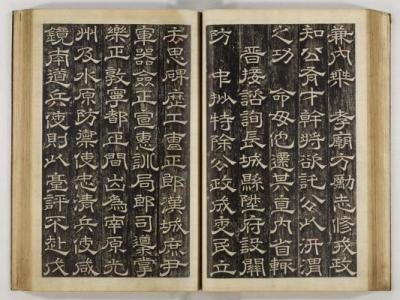 兼內乘 孝廟方勵志修戎政
知公有才幹將欲託公以汧渭
之功 命毋他遷其直內省輒
晉接諮詢長城縣陞府設關
防 中批特除公政成吏民立
去思碑歷工曹正郎漢城庶尹
軍器僉正宣惠訓局郎司導掌
樂正敦寧都正間出為南原光
州及水原防禦使忠清兵使咸
鏡南道兵使則以臺評不赴戊